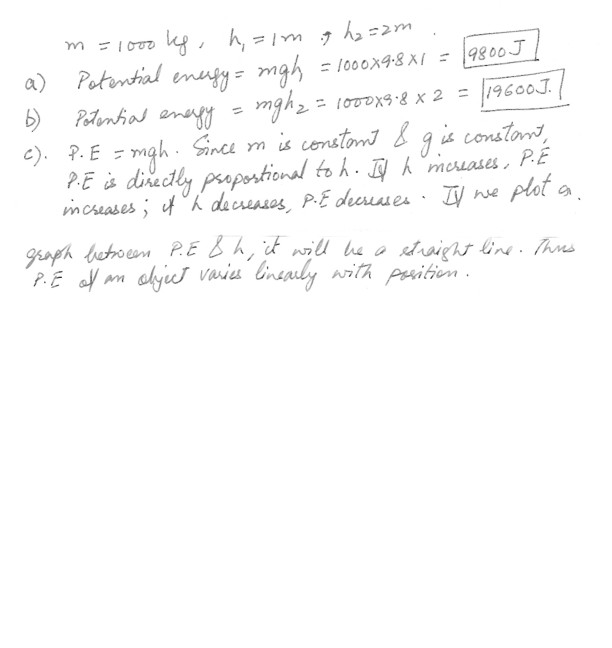 m = 1000 kg, h₁ = 1m, h₂ = 2m.
a) Potential energy = mgh₁ = 1000×9.8×1 = 9800 J
b) Potential energy = mgh₂ = 1000×9.8×2 = 19600 J.
c). P.E = mgh. Since m is constant & g is constant,
P.E is directly proportional to h. If h increases, P.E
increases; if h decreases, P.E decreases. If we plot a.
graph between P.E & h, it will be a straight line. Thus
P.E of an object varies linearly with position.